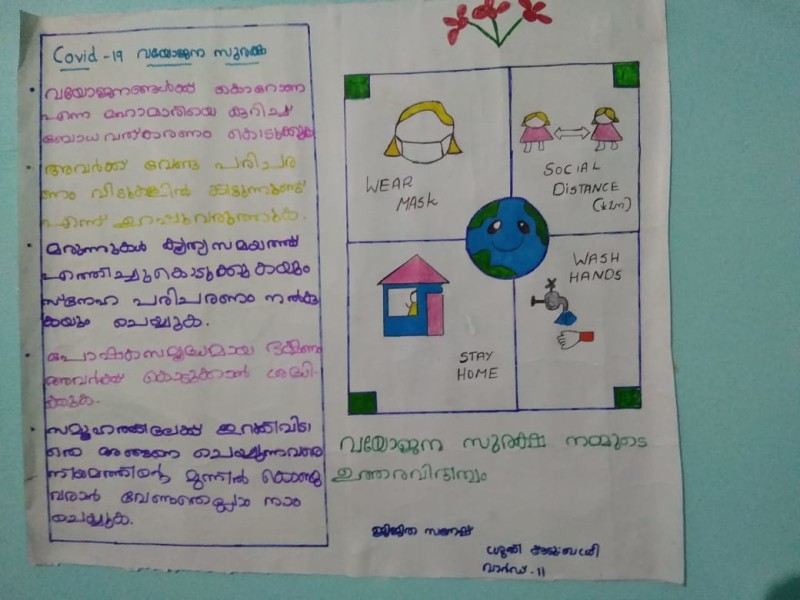 Covid-19 വയോജന സുരക്ഷ
വയോജനങ്ങൾക്ക് കൊറോണ
എന്ന മഹാമാരിയെ കുറിച്ച്
ബോധവത്കരണം കൊടുക്കുക
അവർക്ക് വേണ്ട പരിചര
ണം വീടുകളിൽ കിട്ടുന്നുണ്ട്
എന്ന് ഉറപ്പുവരുത്തുക.
മരുന്നുകൾ കൃത്യസമയത്ത്
എത്തിച്ചുകൊടുക്കുകയും
സ്നേഹ പരിചരണം നൽകു
കയും ചെയ്യുക.
പോഷകസമൃദ്ധമായ ഭക്ഷണം
അവർക്ക് കൊടുക്കാൻ ശ്രദ്ധി-
ക്കുക.
സമൂഹത്തിലേക്ക് ഇറക്കിവിടാ
തെ അങ്ങനെ ചെയ്യുന്നവരെ
നിയമത്തിന്റെ മുന്നിൽ കൊണ്ടു
വരാൻ വേണ്ടതെല്ലാം നാം
ചെയ്യുക.
WEAR
MASK
SOCIAL
DISTANCE
WASH
HANDS
STAY
HOME
വയോജന സുരക്ഷ നമ്മുടെ
ഉത്തരവിദിത്വം
വാർഡ്-11